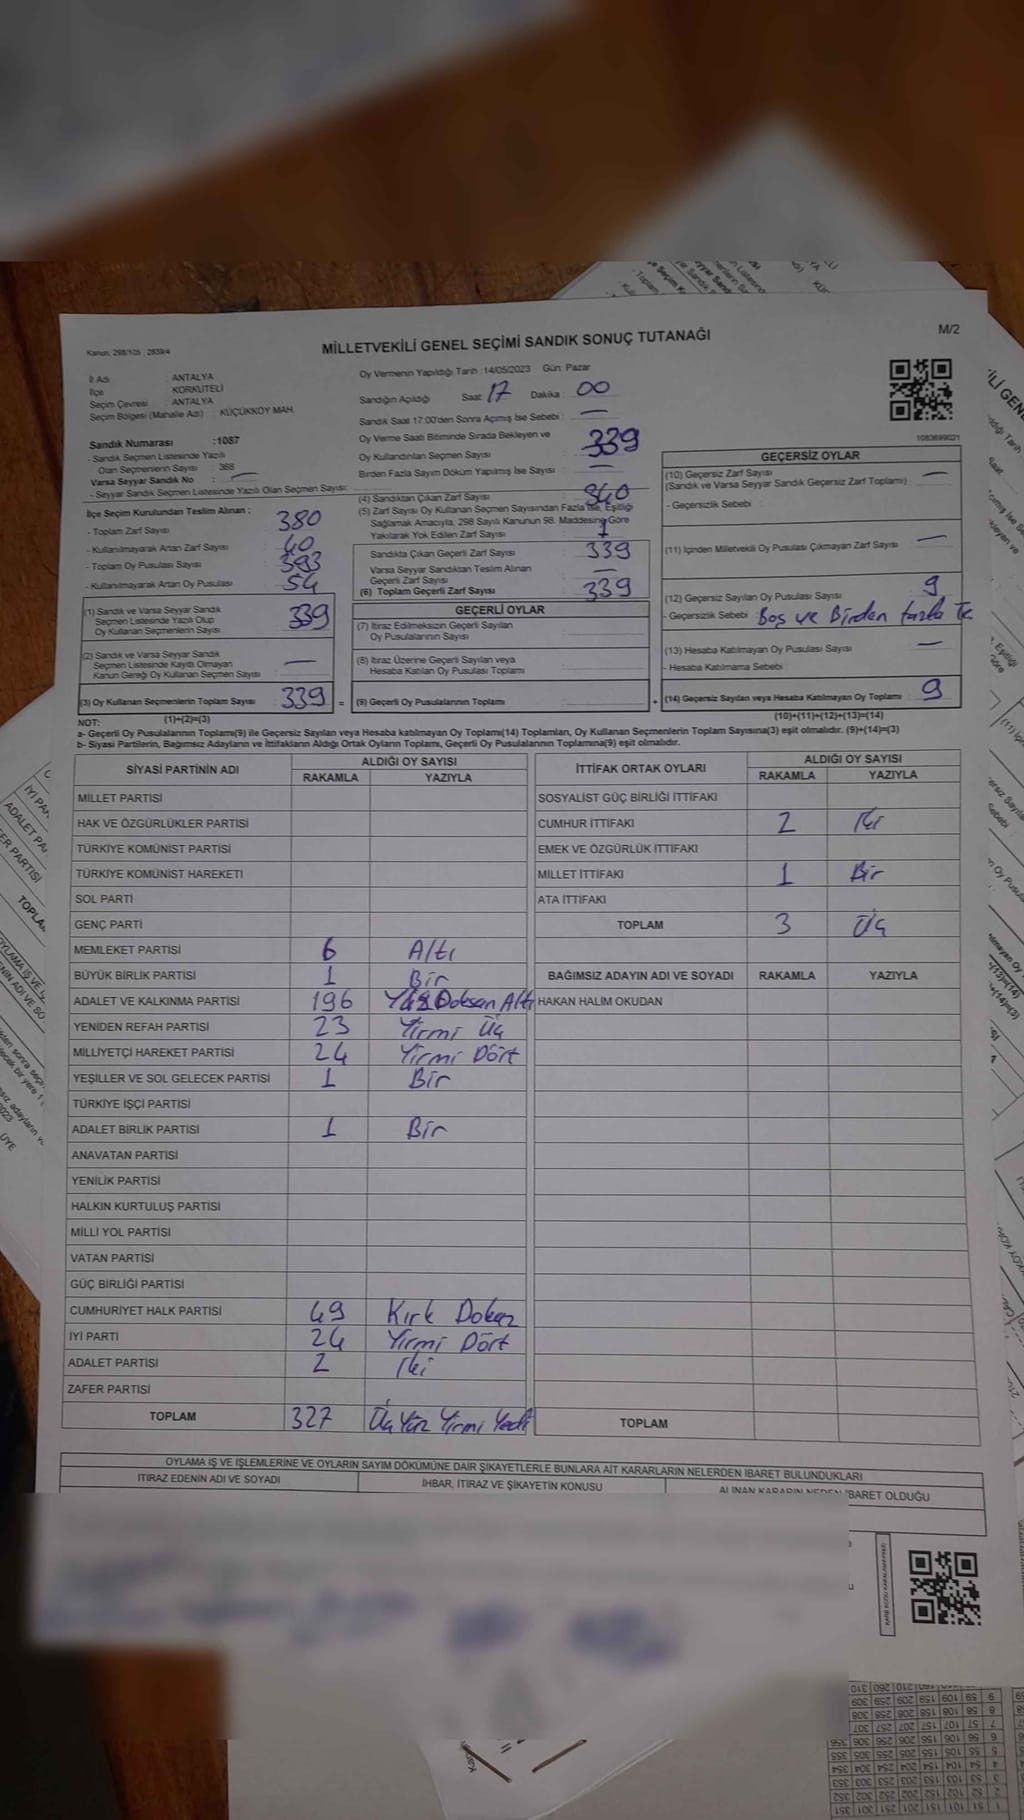 MİLLETVEKİLİ GENEL SEÇİMİ SANDIK SONUÇ TUTANAĞI
M/2
Kanun: 298/105 , 2839/4
İl Adı ANTALYA
İlçe KORKUTELİ
Seçim Çevresi ANTALYA
Seçim Bölgesi (Mahalle Adı) KÜÇÜKKÖY MAH.
Sandık Numarası :1087
- Sandık Seçmen Listesinde Yazılı
Olan Seçmenlerin Sayısı 368
Varsa Seyyar Sandık No : —
- Seyyar Sandık Seçmen Listesinde Yazılı Olan Seçmen Sayısı:
İlçe Seçim Kurulundan Teslim Alınan ;
- Toplam Zarf Sayısı : 380
- Kullanılmayarak Artan Zarf Sayısı : 40
- Toplam Oy Pusulası Sayısı : 393
- Kullanılmayarak Artan Oy Pusulası : 54
(1) Sandık ve Varsa Seyyar Sandık
Seçmen Listesinde Yazılı Olup
Oy Kullanan Seçmenlerin Sayısı 339
(2) Sandık ve Varsa Seyyar Sandık
Seçmen Listesinde Kayıtlı Olmayan
Kanun Gereği Oy Kullanan Seçmen Sayısı —
(3) Oy Kullanan Seçmenlerin Toplam Sayısı 339 =
Oy Vermenin Yapıldığı Tarih :14/05/2023 Gün: Pazar
Sandığın Açıldığı Saat: 17 Dakika : 00
Sandık Saat 17:00'den Sonra Açımış İse Sebebi : —
Oy Verme Saati Bitiminde Sırada Bekleyen ve
Oy Kullandırılan Seçmen Sayısı : 339
Birden Fazla Sayım Döküm Yapılmış İse Sayısı : —
(4) Sandıktan Çıkan Zarf Sayısı : 340
(5) Zarf Sayısı Oy Kullanan Seçmen Sayısından Fazla İse, Eşitliği
Sağlamak Amacıyla, 298 Sayılı Kanunun 98. Maddesine Göre
Yakılarak Yok Edilen Zarf Sayısı : 1
Sandıkta Çıkan Geçerli Zarf Sayısı : 339
Varsa Seyyar Sandıktan Teslim Alınan
Geçerli Zarf Sayısı : —
(6) Toplam Geçerli Zarf Sayısı : 339
GEÇERLİ OYLAR
(7) İtiraz Edilmeksizin Geçerli Sayılan
Oy Pusulalarının Sayısı :
(8) İtiraz Üzerine Geçerli Sayılan veya
Hesaba Katılan Oy Pusulası Toplamı :
(9) Geçerli Oy Pusulalarının Toplamı : +
1083699021
GEÇERSİZ OYLAR
(10) Geçersiz Zarf Sayısı : —
(Sandık ve Varsa Seyyar Sandık Geçersiz Zarf Toplamı)
- Geçersizlik Sebebi :
(11) İçinden Milletvekili Oy Pusulası Çıkmayan Zarf Sayısı : —
(12) Geçersiz Sayılan Oy Pusulası Sayısı : 9
- Geçersizlik Sebebi : Boş ve Birden fazla
(13) Hesaba Katılmayan Oy Pusulası Sayısı : —
- Hesaba Katılmama Sebebi :
(14) Geçersiz Sayılan veya Hesaba Katılmayan Oy Toplamı : 9
NOT: (1)+(2)=(3) (10)+(11)+(12)+(13)=(14)
a- Geçerli Oy Pusulalarının Toplamı(9) ile Geçersiz Sayılan veya Hesaba katılmayan Oy Toplamı(14) Toplamları, Oy Kullanan Seçmenlerin Toplam Sayısına(3) eşit olmalıdır. (9)+(14)=(3)
b- Siyasi Partilerin, Bağımsız Adayların ve İttifakların Aldığı Ortak Oyların Toplamı, Geçerli Oy Pusulalarının Toplamına(9) eşit olmalıdır.
SİYASİ PARTİNİN ADI ALDIĞI OY SAYISI
RAKAMLA YAZIYLA
MİLLET PARTİSİ
HAK VE ÖZGÜRLÜKLER PARTİSİ
TÜRKİYE KOMÜNİST PARTİSİ
TÜRKİYE KOMÜNİST HAREKETİ
SOL PARTİ
GENÇ PARTİ
MEMLEKET PARTİSİ 6 Altı
BÜYÜK BİRLİK PARTİSİ 1 Bir
ADALET VE KALKINMA PARTİSİ 196 Yüz Doksan Altı
YENİDEN REFAH PARTİSİ 23 Yirmi Üç
MİLLİYETÇİ HAREKET PARTİSİ 24 Yirmi Dört
YEŞİLLER VE SOL GELECEK PARTİSİ 1 Bir
TÜRKİYE İŞÇİ PARTİSİ
ADALET BİRLİK PARTİSİ 1 Bir
ANAVATAN PARTİSİ
YENİLİK PARTİSİ
HALKIN KURTULUŞ PARTİSİ
MİLLİ YOL PARTİSİ
VATAN PARTİSİ
GÜÇ BİRLİĞİ PARTİSİ
CUMHURİYET HALK PARTİSİ 49 Kırk Dokuz
İYİ PARTİ 24 Yirmi Dört
ADALET PARTİSİ 2 İki
ZAFER PARTİSİ
TOPLAM 327 Üç Yüz Yirmi Yedi
İTTİFAK ORTAK OYLARI ALDIĞI OY SAYISI
RAKAMLA YAZIYLA
SOSYALİST GÜÇ BİRLİĞİ İTTİFAKI
CUMHUR İTTİFAKI 2 İki
EMEK VE ÖZGÜRLÜK İTTİFAKI
MİLLET İTTİFAKI 1 Bir
ATA İTTİFAKI
TOPLAM 3 Üç
BAĞIMSIZ ADAYIN ADI VE SOYADI RAKAMLA YAZIYLA
HAKAN HALİM OKUDAN
TOPLAM
OYLAMA İŞ VE İŞLEMLERİNE VE OYLARIN SAYIM DÖKÜMÜNE DAİR ŞİKAYETLERLE BUNLARA AİT KARARLARIN NELERDEN İBARET BULUNDUKLARI
İTİRAZ EDENİN ADI VE SOYADI İHBAR, İTİRAZ VE ŞİKAYETİN KONUSU ALINAN KARARIN NEDEN İBARET OLDUĞU